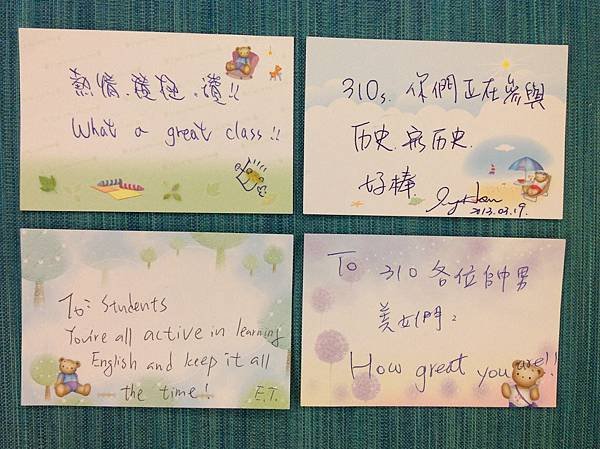 熱情、積極、讚!!
What a great class!!
310s. 你們正在參與
历史、寫历史.
好棒.
2013.03.19.
To: Students
You're all active in learning
English and keep it all
the time!
E.T.
To 310 各位帥男
美女們:
How great you are!!